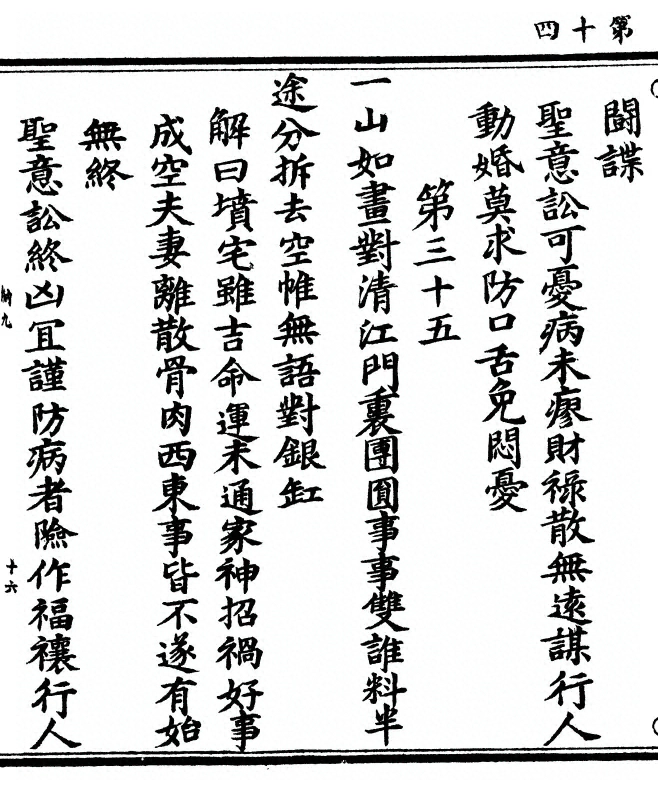 第十四
鬪諜
聖意訟可憂病未瘳財祿散無遠謀行人
動婚莫求防口舌免悶憂
第三十五
一山如畫對清江門裏團圓事事雙誰料半
途分拆去空帷無語對銀缸
解曰墳宅雖吉命運未通家神招禍好事
成空夫妻離散骨肉西東事皆不遂有始
無終
聖意訟終凶冝謹防病者險作福禳行人
十六